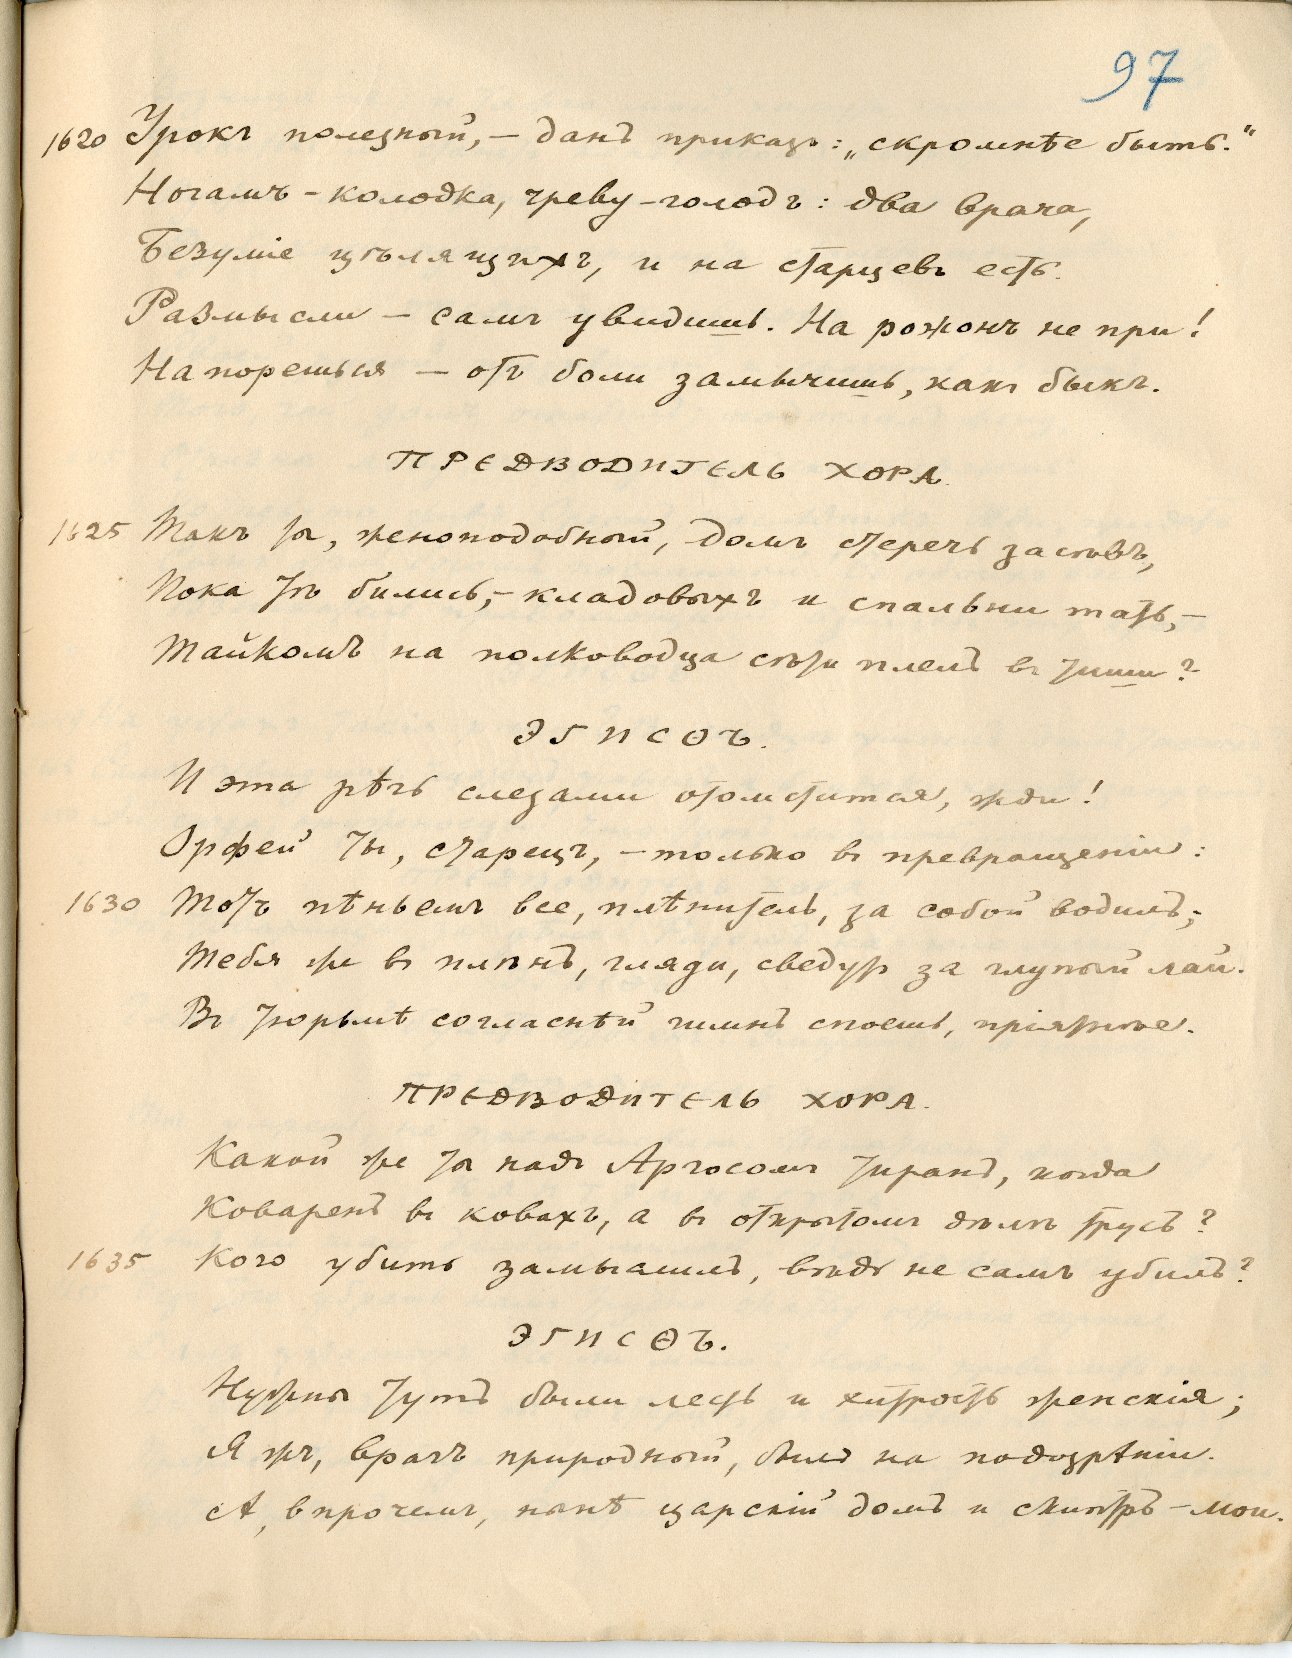 97
1620 Урокъ полезный, – данъ приказъ: „скромнѣе быть.“
Ногамъ – колодка, чреву – голодъ: два врача,
Безумiе цѣлящихъ, и на старцевъ есть.
Размысли – самъ увидишь. На рожонъ не при!
Напорешься – отъ боли замычишь, какъ быкъ.
ПРЕДВОДИТЕЛЬ ХОРА.
1625 Такъ ты, женоподобный, домъ стеречь засѣвъ,
Пока тѣ бились, – кладовыхъ и спальни тать, –
Тайкомъ на полководца сѣти плелъ въ тиши?
ЭГИСѲЪ.
И эта рѣчь слезами отомстится, жди!
Орфей ты, старецъ, – только въ превращенiи:
1630 Тотъ пѣньемъ все, плѣнитель, за собой водилъ;
Тебя же въ плѣнъ, гляди, сведутъ за глупый лай.
Въ тюрьмѣ согласнѣй гимнъ споешь, прiятнѣе.
ПРЕДВОДИТЕЛЬ ХОРА.
Какой же ты надъ Аргосомъ тиранъ, когда
Коваренъ въ ковахъ, а въ открытомъ дѣлѣ трусъ?
1635 Кого убить замыслилъ, вѣдь не самъ убилъ?
ЭГИСѲЪ.
Нужны тутъ были лесть и хитрость женскiя;
Я жъ, врагъ природный, былъ на подозрѣнiи.
А, впрочемъ, нынѣ царскiй домъ и скиптръ – мои.